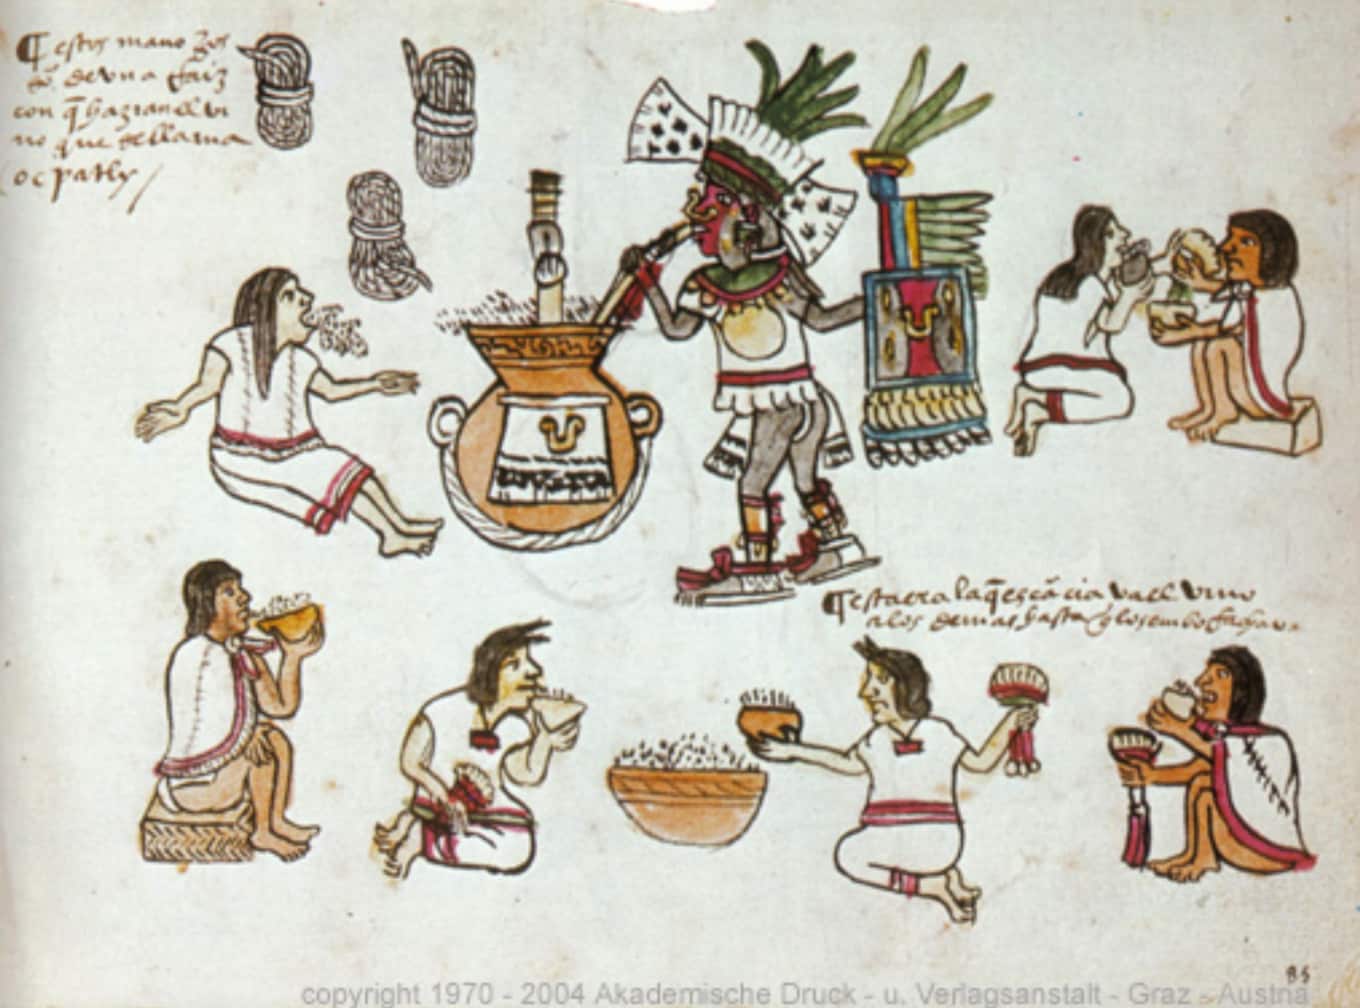 estos mano Jos
de vna Raiz
con q̄ hazian el vi
no que se llama
ocpatly /
esta era la q̄ escācia va el vino
a los demas hasta q̄ los emboRachava.
85
copyright 1970 - 2004 Akademische Druck - u. Verlagsanstalt - Graz - Austria